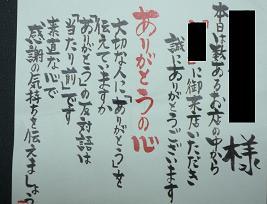 様
本日は数あるお店の中から
に御来店いただき
誠にありがとうございます
ありがとうの心
大切な人に「ありがとう」を
伝えていますか
ありがとうの反対語は
「当たり前」です
素直な心で
感謝の気持ちを伝えましょう